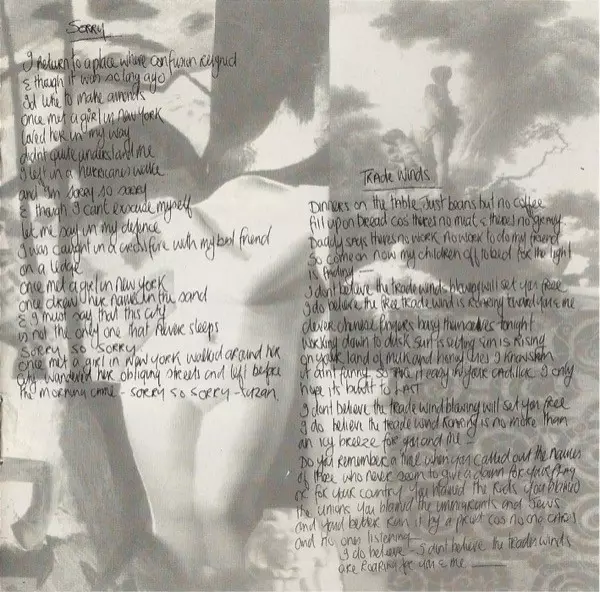 SORRY
I return to a place where confusion reigned
& though it was so long ago
I'd like to make amends
once met a girl in New York
loved her in my way
didnt quite understand me
I left in a hurricanes wake
and I'm sorry so sorry
& though I cant excuse myself
let me say in my defence
I was caught in a crossfire with my best friend
on a ledge
once met a girl in new york
once drew her name in the sand
& I must say that this city
is not the only one that never sleeps
SORRY SO SORRY
once met a girl in new york walked around her
city wandered her obliging streets and left before
the morning came - SORRY SO SORRY -
TRADE WINDS
Dinners on the table just beans but no coffee
fill up on bread cos theres no meat & theres no gravy
Daddy says theres no work no work to do my friend
So come on now my children off to bed for the light
is fading
I dont believe the trade winds blowing will set you free
I do believe the free trade wind is roaring toward you & me
clever chinese fingers busy themselves tonight
working down to dusk sun is setting sun is rising
on your land of milk and honey yes I know
it aint funny so take it easy in your cadillac I only
hope its built to LAST
I dont believe the trade wind blowing will set you free
I do believe the trade wind roaring is no more than
an icy breeze for you and me
Do you remember a time when you called out the names
of those who never seem to give a damn for your
or for your country you blamed the Reds you blamed
the unions you blamed the immigrants and Jews
and you'd better run it by a priest cos no one cares
and no ones listening
I do believe I dont believe the trade winds
are roaring for you & me